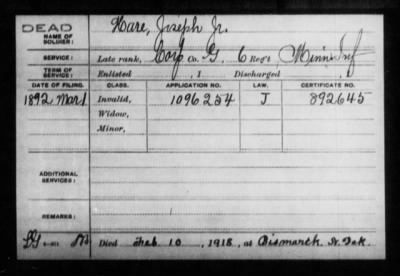 DEAD
NAME OF SOLDIER: Hare, Joseph Jr.
SERVICE: Late rank, Corp Co. G, 6 Reg't Minn Inf
TERM OF SERVICE: Enlisted , 1 Discharged , 1
DATE OF FILING. CLASS. APPLICATION NO. LAW. CERTIFICATE NO.
1892 Mar 1 Invalid, 1096254 J 892645
Widow,
Minor,
ADDITIONAL SERVICES:
REMARKS:
Died Feb 10, 1918, at Bismarck N. Dak.